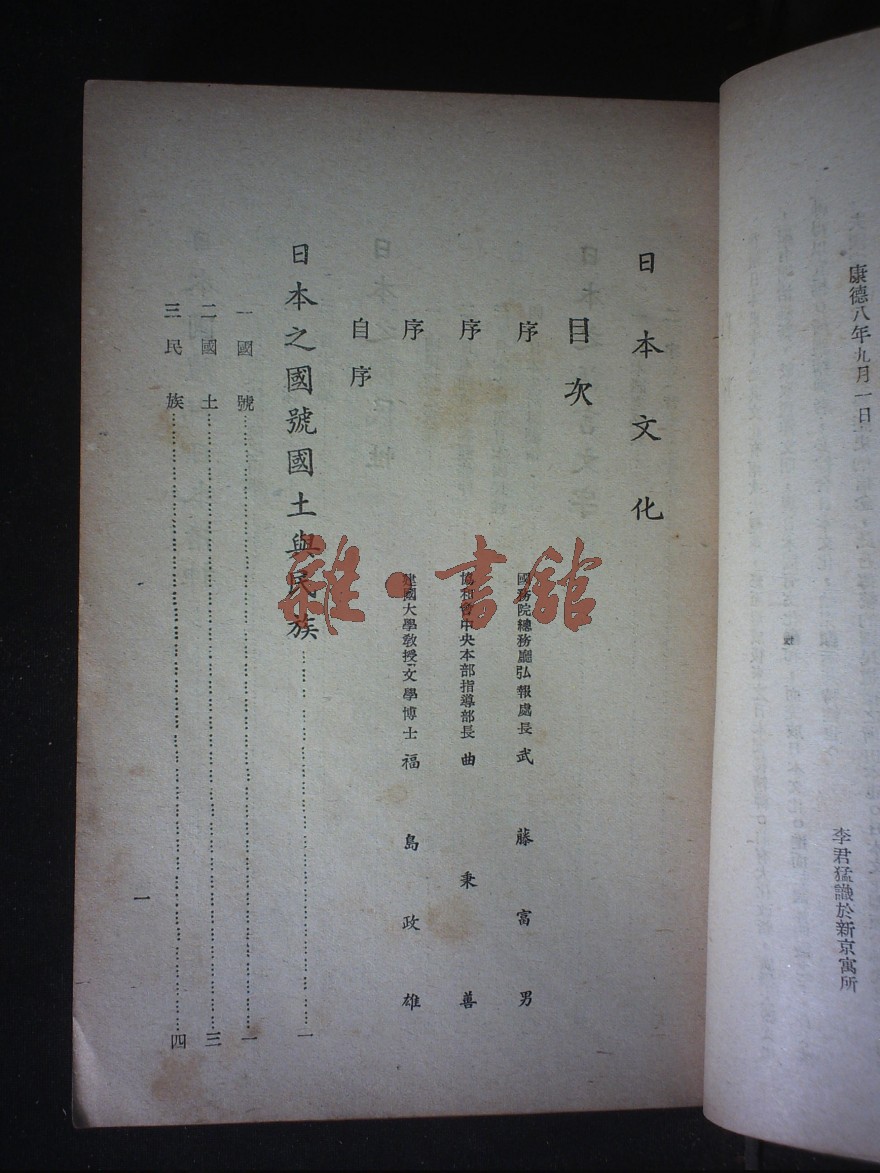 康德八年九月一日
李君猛識於新京寓所
日本文化
目次
序 國務院總務廳弘報處長 武藤富男
序 協和會中央本部指導部長 曲秉善
序 建國大學敎授・文學博士 福島政雄
自序
日本之國號國土與民族……一
一 國號……一
二 國土……三
三 民族……四
一
雜·書館